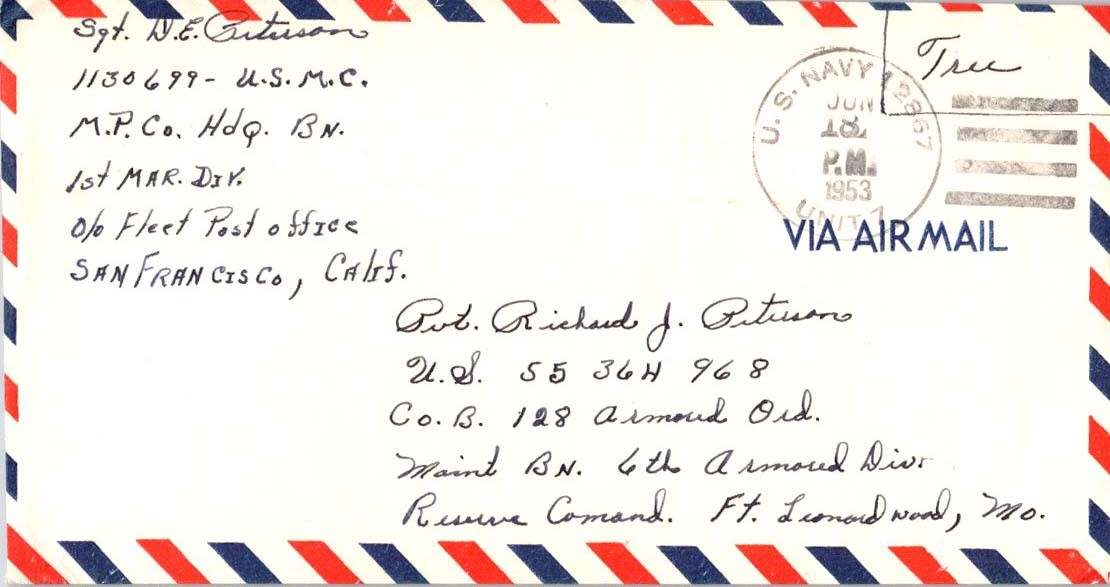 Sgt. D.E. Peterson
1130699- U.S.M.C.
M.P. Co. Hdq. BN.
1st MAR. DIV.
c/o Fleet Post office
SAN FRANCISCO, CAlif.
Free
U.S. NAVY 12867
JUN
18
P.M.
1953
UNIT 1
VIA AIR MAIL
Pvt. Richard J. Peterson
U.S. 55 364 968
Co. B. 128 Armored Ord.
Maint BN. 6th Armored Div.
Reserve Comand. Ft. Leonardwood, Mo.